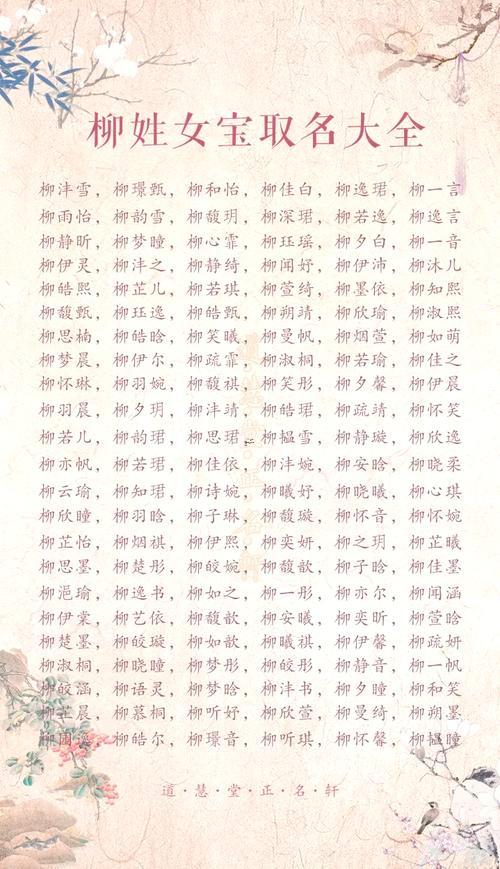 柳姓女宝取名大全
柳沣雪，柳璟甄，柳和怡，柳佳白，柳逸珺，柳一言
柳雨怡，柳韵雪，柳馥玥，柳深珺，柳若逸，柳逸言
柳静昕，柳梦曈，柳心霏，柳珏瑶，柳夕白，柳一音
柳伊灵，柳沣之，柳静绮，柳闻妤，柳伊沛，柳沐儿
柳皓熙，柳芷儿，柳若琪，柳萱绮，柳墨依，柳知熙
柳馥甄，柳珏逸，柳皓甄，柳朔靖，柳欣瑜，柳淑熙
柳思楠，柳皓晗，柳笑曦，柳曼帆，柳烟萱，柳如萌
柳梦晨，柳伊尔，柳疏霏，柳淑桐，柳若瑜，柳佳之
柳怀琳，柳羽婉，柳馥祺，柳笑彤，柳夕馨，柳伊晨
柳羽晨，柳夕玥，柳沣靖，柳皓珺，柳疏靖，柳怀笑
柳若儿，柳韵珺，柳思珺，柳韫雪，柳静璇，柳欣逸
柳亦帆，柳若珺，柳佳依，柳沣婉，柳安晗，柳晓柔
柳云瑜，柳知珺，柳诗婉，柳曦妤，柳晓曦，柳心琪
柳欣曈，柳羽晗，柳子琳，柳馥璇，柳怀音，柳怀婉
柳芷怡，柳烟祺，柳伊熙，柳奕妍，柳之玥，柳芷曦
柳思墨，柳楚彤，柳皎婉，柳馥歆，柳子晗，柳佳墨
柳浥瑜，柳逸书，柳如之，柳一彤，柳亦尔，柳闻涵
柳伊棠，柳艺依，柳馥歆，柳安曦，柳奕昕，柳萱晗
柳楚墨，柳皎璇，柳如歆，柳曦祺，柳伊馨，柳疏妍
柳淑桐，柳晓曈，柳梦彤，柳皎彤，柳静音，柳一帆
柳皎涵，柳语灵，柳梦晗，柳沣书，柳夕曈，柳和笑
柳芷晨，柳慕桐，柳听妤，柳欣萱，柳曼绮，柳朔墨
柳皓尔，柳璟音，柳听琪，柳怀馨，柳韫曈
道·慧·堂·正·名·轩